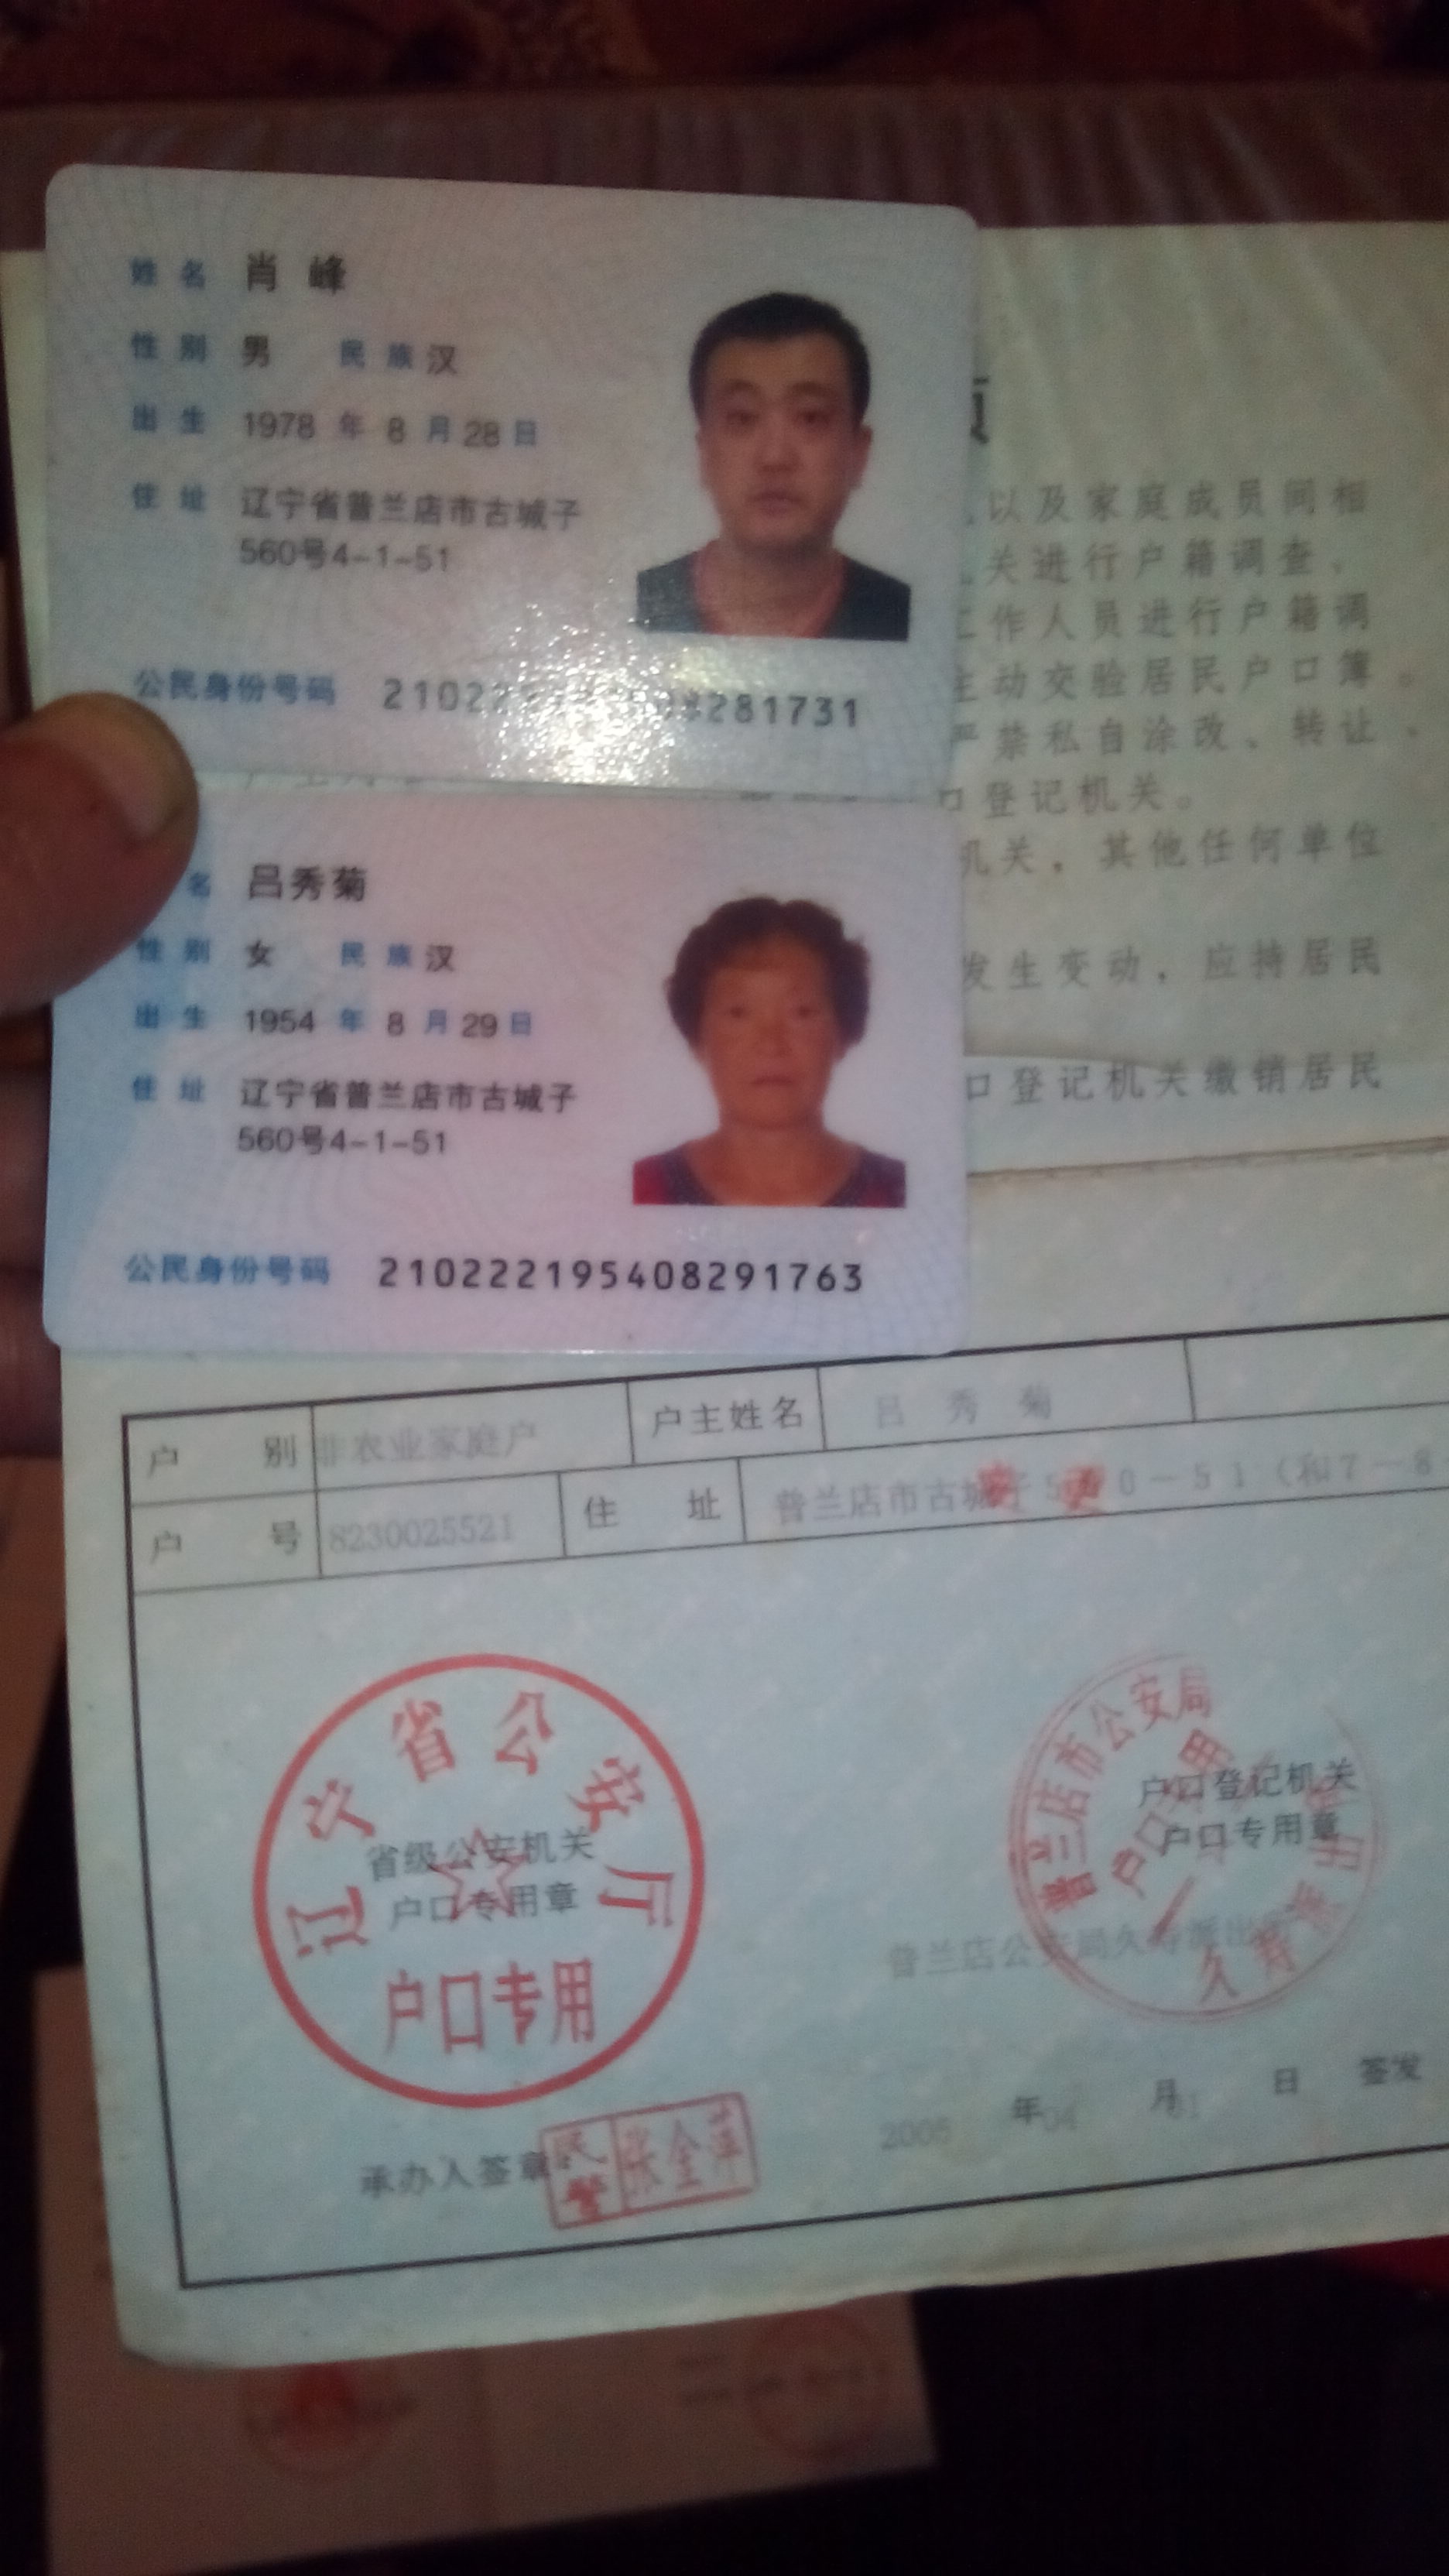 姓名 肖峰
性别 男 民族 汉
出生 1978年8月28日
住址 辽宁省普兰店市古城子
560号4-1-51
公民身份号码
名 吕秀菊
性别 女 民族 汉
出生 1954年8月29日
住址 辽宁省普兰店市古城子
560号4-1-51
公民身份号码 210222195408291763
以及家庭成员间相
关进行户籍调查，
工作人员进行户籍调
主动交验居民户口簿。
严禁私自涂改、转让、
口登记机关。
机关，其他任何单位
发生变动，应持居民
口登记机关缴销居民
户别 非农业家庭户 户主姓名 吕秀菊
户号 8230025521 住址 普兰店市古城
辽宁省公安厅
省级公安机关
户口专用章
户口专用
普兰店市公安局
户口登记机关
户口专用章
承办人签章
民警 张金萍
2005年04月01日签发